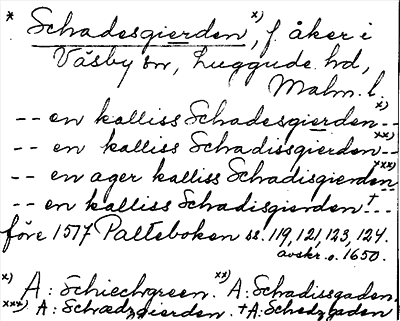 * Schadesgierden x), f. åker i
Väsby sn, Luggude hd,
Malm. l.
-- en kalliss Schadesgierden x) --
-- en kalliss Schadissgierden xx) --
-- en ager kalliss Schadisgierden xxx)
-- en kalliss Schadisgierden † --
före 1577 Palteboken ss. 119, 121, 123, 124.
avskr. o. 1650.
x) A: Schiechgreen. xx) A: Schadissgaden.
xxx) A: Schædzgierden. † A: Schedzgaden